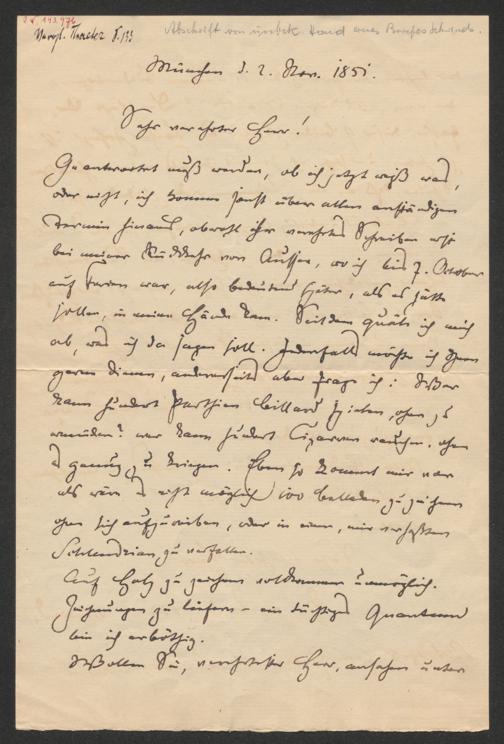 I.N. 143.976
Abschrift von unbek. Hand eines Briefes Schwinds.
München d. 2. Nov. 1851.
Sehr verehrter Herr!
Geantwortet muß werden, ob ich jetzt weiß was,
oder nicht, ich komme sonst über allen anständigen
Termin hinaus, obwohl Ihr verehrtes Schreiben erst
bei meiner Rückkehr von Aussen, wo ich bis 7. October
auf Ferien war, also bedeutend später, als es hätte
sollen, in meine Hände kam. Seitdem quäle ich mich
ab, was ich da sagen soll. Jedenfalls möchte ich Ihnen
gerne dienen, anderseits aber frage ich: Wer
kann hundert Parthien Billard spielen, ohne zu
ermüden? wer kann hundert Cigarren rauchen, ohne
genug zu kriegen. Eben so kommt mir vor
als wäre es nicht möglich 100 Balladen zu zeichnen
ohne sich aufzureiben, oder in einen, mir verhaßten
Schlendrian zu verfallen.
Auf Holz zu zeichnen vollkommen unmöglich.
Zeichnungen zu liefern – ein tüchtiges Quantum
bin ich erböthig.
Wollen Sie, verehrtester Herr, ansehen unter